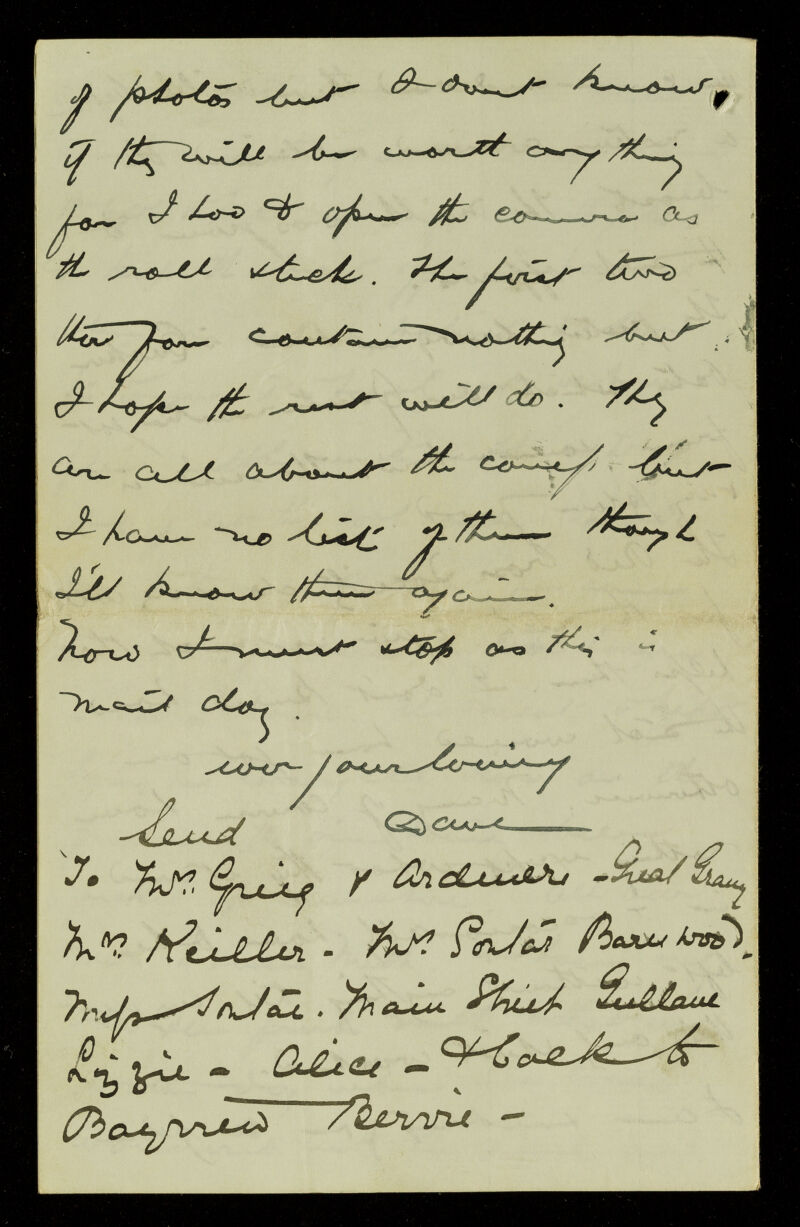 of photos but I dont know
if they will be worth anything
for I had to open the camera as
the roll stuck. The first two
therefore contain nothing but
I hope the rest will do. They
are all about the camp but
I have no list of them though
I'll know them again.
Now I must stop as this is
mail day.
ever your loving
Dave
Send
To Mrs. Greig & Ardmere - Great Granny
Mrs. Keiller - Mrs. Soutar Barnwood.
Miss Soutar. Main Street Gullane
Lizzie - Alice - & back to
Bayview Bervie -